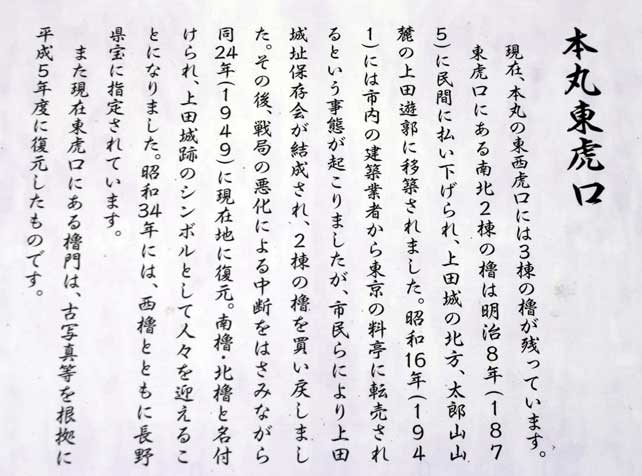 本丸東虎口
現在、本丸の東西虎口には3棟の櫓が残っています。
東虎口にある南北2棟の櫓は明治8年(187
5)に民間に払い下げられ、上田城の北方、太郎山山
麓の上田遊郭に移築されました。昭和16年(194
1)には市内の建築業者から東京の料亭に転売され
るという事態が起こりましたが、市民らにより上田
城址保存会が結成され、2棟の櫓を買い戻しまし
た。その後、戦局の悪化による中断をはさみながら
同24年(1949)に現在地に復元。南櫓・北櫓と名付
けられ、上田城跡のシンボルとして人々を迎えるこ
とになりました。昭和34年には、西櫓とともに長野
県宝に指定されています。
また現在東虎口にある櫓門は、古写真等を根拠に
平成5年度に復元したものです。